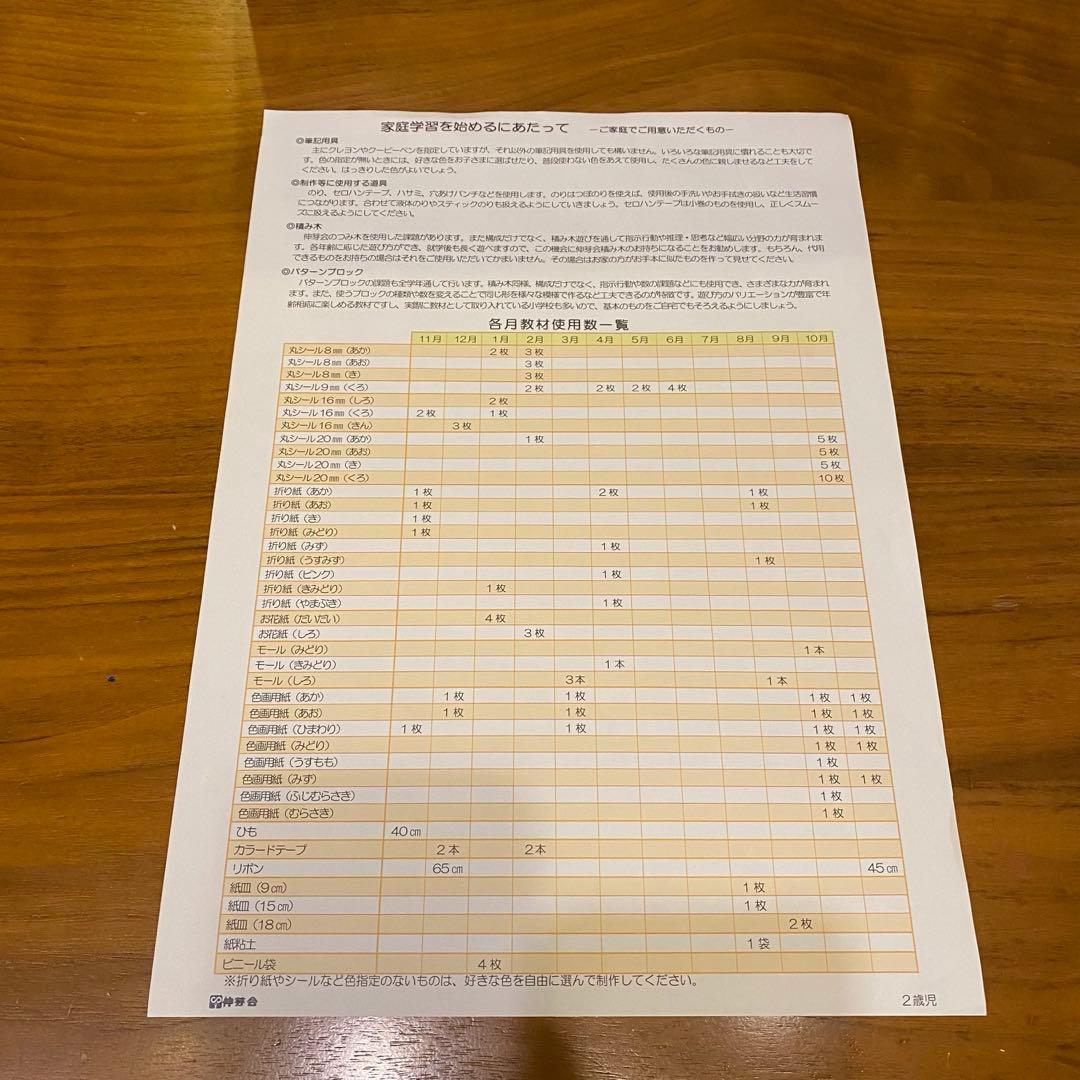 家庭学習を始めるにあたって ―ご家庭でご用意いただくもの―
◎筆記用具
主にクレヨンやクーピーペンを指定していますが、それ以外の筆記用具を使用しても構いません。いろいろな筆記用具に慣れることも大切です。色の指定が無いときには、好きな色をお子さまに選ばせたり、普段使わない色をあえて使用し、たくさんの色に親しませるなど工夫をしてください。はっきりした色がよいでしょう。
◎制作等に使用する道具
のり、セロハンテープ、ハサミ、穴あけパンチなどを使用します。のりはつぼのりを使えば、使用後の手洗いやお手拭きの扱いなど生活習慣につながります。合わせて液体のりやスティックのりも扱えるようにしていきましょう。セロハンテープは小巻のものを使用し、正しくスムーズに扱えるようにしてください。
◎積み木
伸芽会のつみ木を使用した課題があります。また構成だけでなく、積み木遊びを通して指示行動や推理・思考など幅広い分野の力が育まれます。各年齢に応じた遊び方ができ、就学後も長く遊べますので、この機会に伸芽会積み木のお持ちになることをお勧めします。もちろん、代用できるものをお持ちの場合はそれをご使用いただいてかまいません。その場合はお家の方がお手本に似たものを作って見せてください。
◎パターンブロック
パターンブロックの課題も全学年通して行います。積み木同様、構成だけでなく、指示行動や数の課題などにも使用でき、さまざまな力が育まれます。また、使うブロックの種類や数を変えることで同じ形を様々な模様で作るなど工夫できるのが特徴です。遊び方のバリエーションが豊富で年齢相応に楽しめる教材ですし、実際に教材として取り入れている小学校も多いので、基本のものをご自宅でもそろえるようにしましょう。
各月教材使用数一覧
11月 12月 1月 2月 3月 4月 5月 6月 7月 8月 9月 10月
丸シール8㎜（あか） 2枚 3枚
丸シール8㎜（あお） 3枚
丸シール8㎜（き） 3枚
丸シール9㎜（くろ） 2枚 2枚 2枚 4枚
丸シール16㎜（しろ） 2枚
丸シール16㎜（くろ） 2枚 1枚
丸シール16㎜（きん） 3枚
丸シール20㎜（あか） 1枚 5枚
丸シール20㎜（あお） 5枚
丸シール20㎜（き） 5枚
丸シール20㎜（くろ） 10枚
折り紙（あか） 1枚 2枚 1枚
折り紙（あお） 1枚 1枚
折り紙（き） 1枚
折り紙（みどり） 1枚
折り紙（みず） 1枚
折り紙（うすみず） 1枚
折り紙（ピンク） 1枚
折り紙（きみどり） 1枚
折り紙（やまぶき） 1枚
お花紙（だいだい） 4枚
お花紙（しろ） 3枚
モール（みどり） 1本
モール（きみどり） 1本
モール（しろ） 3本 1本
色画用紙（あか） 1枚 1枚 1枚 1枚
色画用紙（あお） 1枚 1枚 1枚 1枚
色画用紙（ひまわり） 1枚 1枚 1枚 1枚
色画用紙（みどり） 1枚 1枚
色画用紙（うすもも） 1枚
色画用紙（みず） 1枚 1枚
色画用紙（ふじむらさき） 1枚
色画用紙（むらさき） 1枚
ひも 40㎝
カラードテープ 2本 2本
リボン 65㎝ 45㎝
紙皿（9㎝） 1枚
紙皿（15㎝） 1枚
紙皿（18㎝） 2枚
紙粘土 1袋
ビニール袋 4枚
※折り紙やシールなど色指定のないものは、好きな色を自由に選んで制作してください。
伸芽会 2歳児